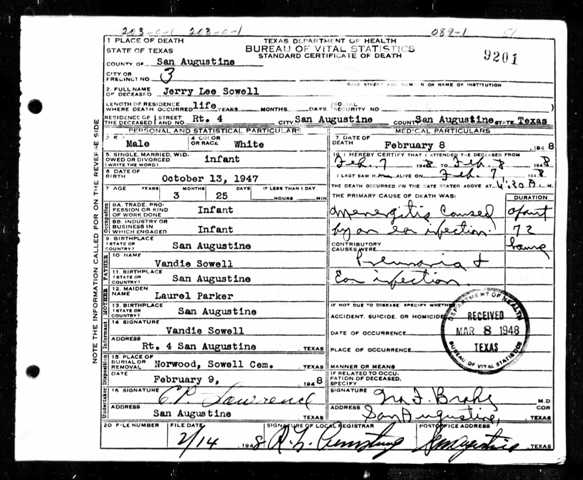 203-0-1 203-0-1 089-1
1 PLACE OF DEATH TEXAS DEPARTMENT OF HEALTH
STATE OF TEXAS BUREAU OF VITAL STATISTICS
STANDARD CERTIFICATE OF DEATH 9201
COUNTY OF San Augustine
CITY OR PRECINCT NO. 3
2 FULL NAME OF DECEASED Jerry Lee Sowell
LENGTH OF RESIDENCE WHERE DEATH OCCURRED life YEARS MONTHS DAYS SECURITY NO.
RESIDENCE OF THE DECEASED STREET AND NO. Rt. 4 CITY San Augustine COUNTY San Augustine STATE Texas
PERSONAL AND STATISTICAL PARTICULARS MEDICAL PARTICULARS
Male RACE White 7 DATE OF DEATH February 8 1948
5 SINGLE, MARRIED, WID- OWED OR DIVORCED (WRITE THE WORD) infant
I HEREBY CERTIFY THAT I ATTENDED THE DECEASED FROM
Feb. 7 1948 TO Feb. 8 1948
6 DATE OF BIRTH October 13, 1947
I LAST SAW HIM ALIVE ON Feb. 7 1948
7 AGE YEARS MONTHS DAYS IF LESS THAN 1 DAY
3 25 HOURS MIN
THE DEATH OCCURRED ON THE DATE STATED ABOVE AT 4:20 M.
THE PRIMARY CAUSE OF DEATH WAS: DURATION
8A. TRADE, PRO- FESSION OR KIND OF WORK DONE Infant
Menengitis Caused
8B. INDUSTRY OR BUSINESS IN WHICH ENGAGED Infant
by an ear infection 72 hours
9 BIRTHPLACE (STATE OR COUNTRY) San Augustine
CONTRIBUTORY CAUSES WERE:
10 NAME Vandie Sowell
FATHER
11 BIRTHPLACE (STATE OR COUNTRY) San Augustine
Ear infection
12 MAIDEN NAME Laurel Parker
MOTHER
13 BIRTHPLACE (STATE OR COUNTRY) San Augustine
IF NOT DUE TO DISEASE SPECIFY WHETHER
ACCIDENT, SUICIDE, OR HOMICIDE
14 SIGNATURE Vandie Sowell
DATE OF OCCURRENCE
ADDRESS Rt. 4 San Augustine TEXAS
PLACE OF OCCURRENCE TEXAS
DEPARTMENT OF HEALTH
RECEIVED
MAR 8 1948
TEXAS
BUREAU OF VITAL STATISTICS
15 PLACE OF BURIAL OR REMOVAL Norwood, Sowell Cem. TEXAS
MANNER OR MEANS
DATE February 9, 1948
IF RELATED TO OCCU- PATION OF DECEASED, SPECIFY
16 SIGNATURE Lawrence
SIGNATURE M.D
ADDRESS San Augustine TEXAS
ADDRESS San Augustine, COR TEXAS
20 FILE NUMBER FILE DATE SIGNATURE OF LOCAL REGISTRAR POSTOFFICE ADDRESS
2/14 1948 San Augustine TEXAS
NOTE THE INFORMATION CALLED FOR ON THE REVERSE SIDE